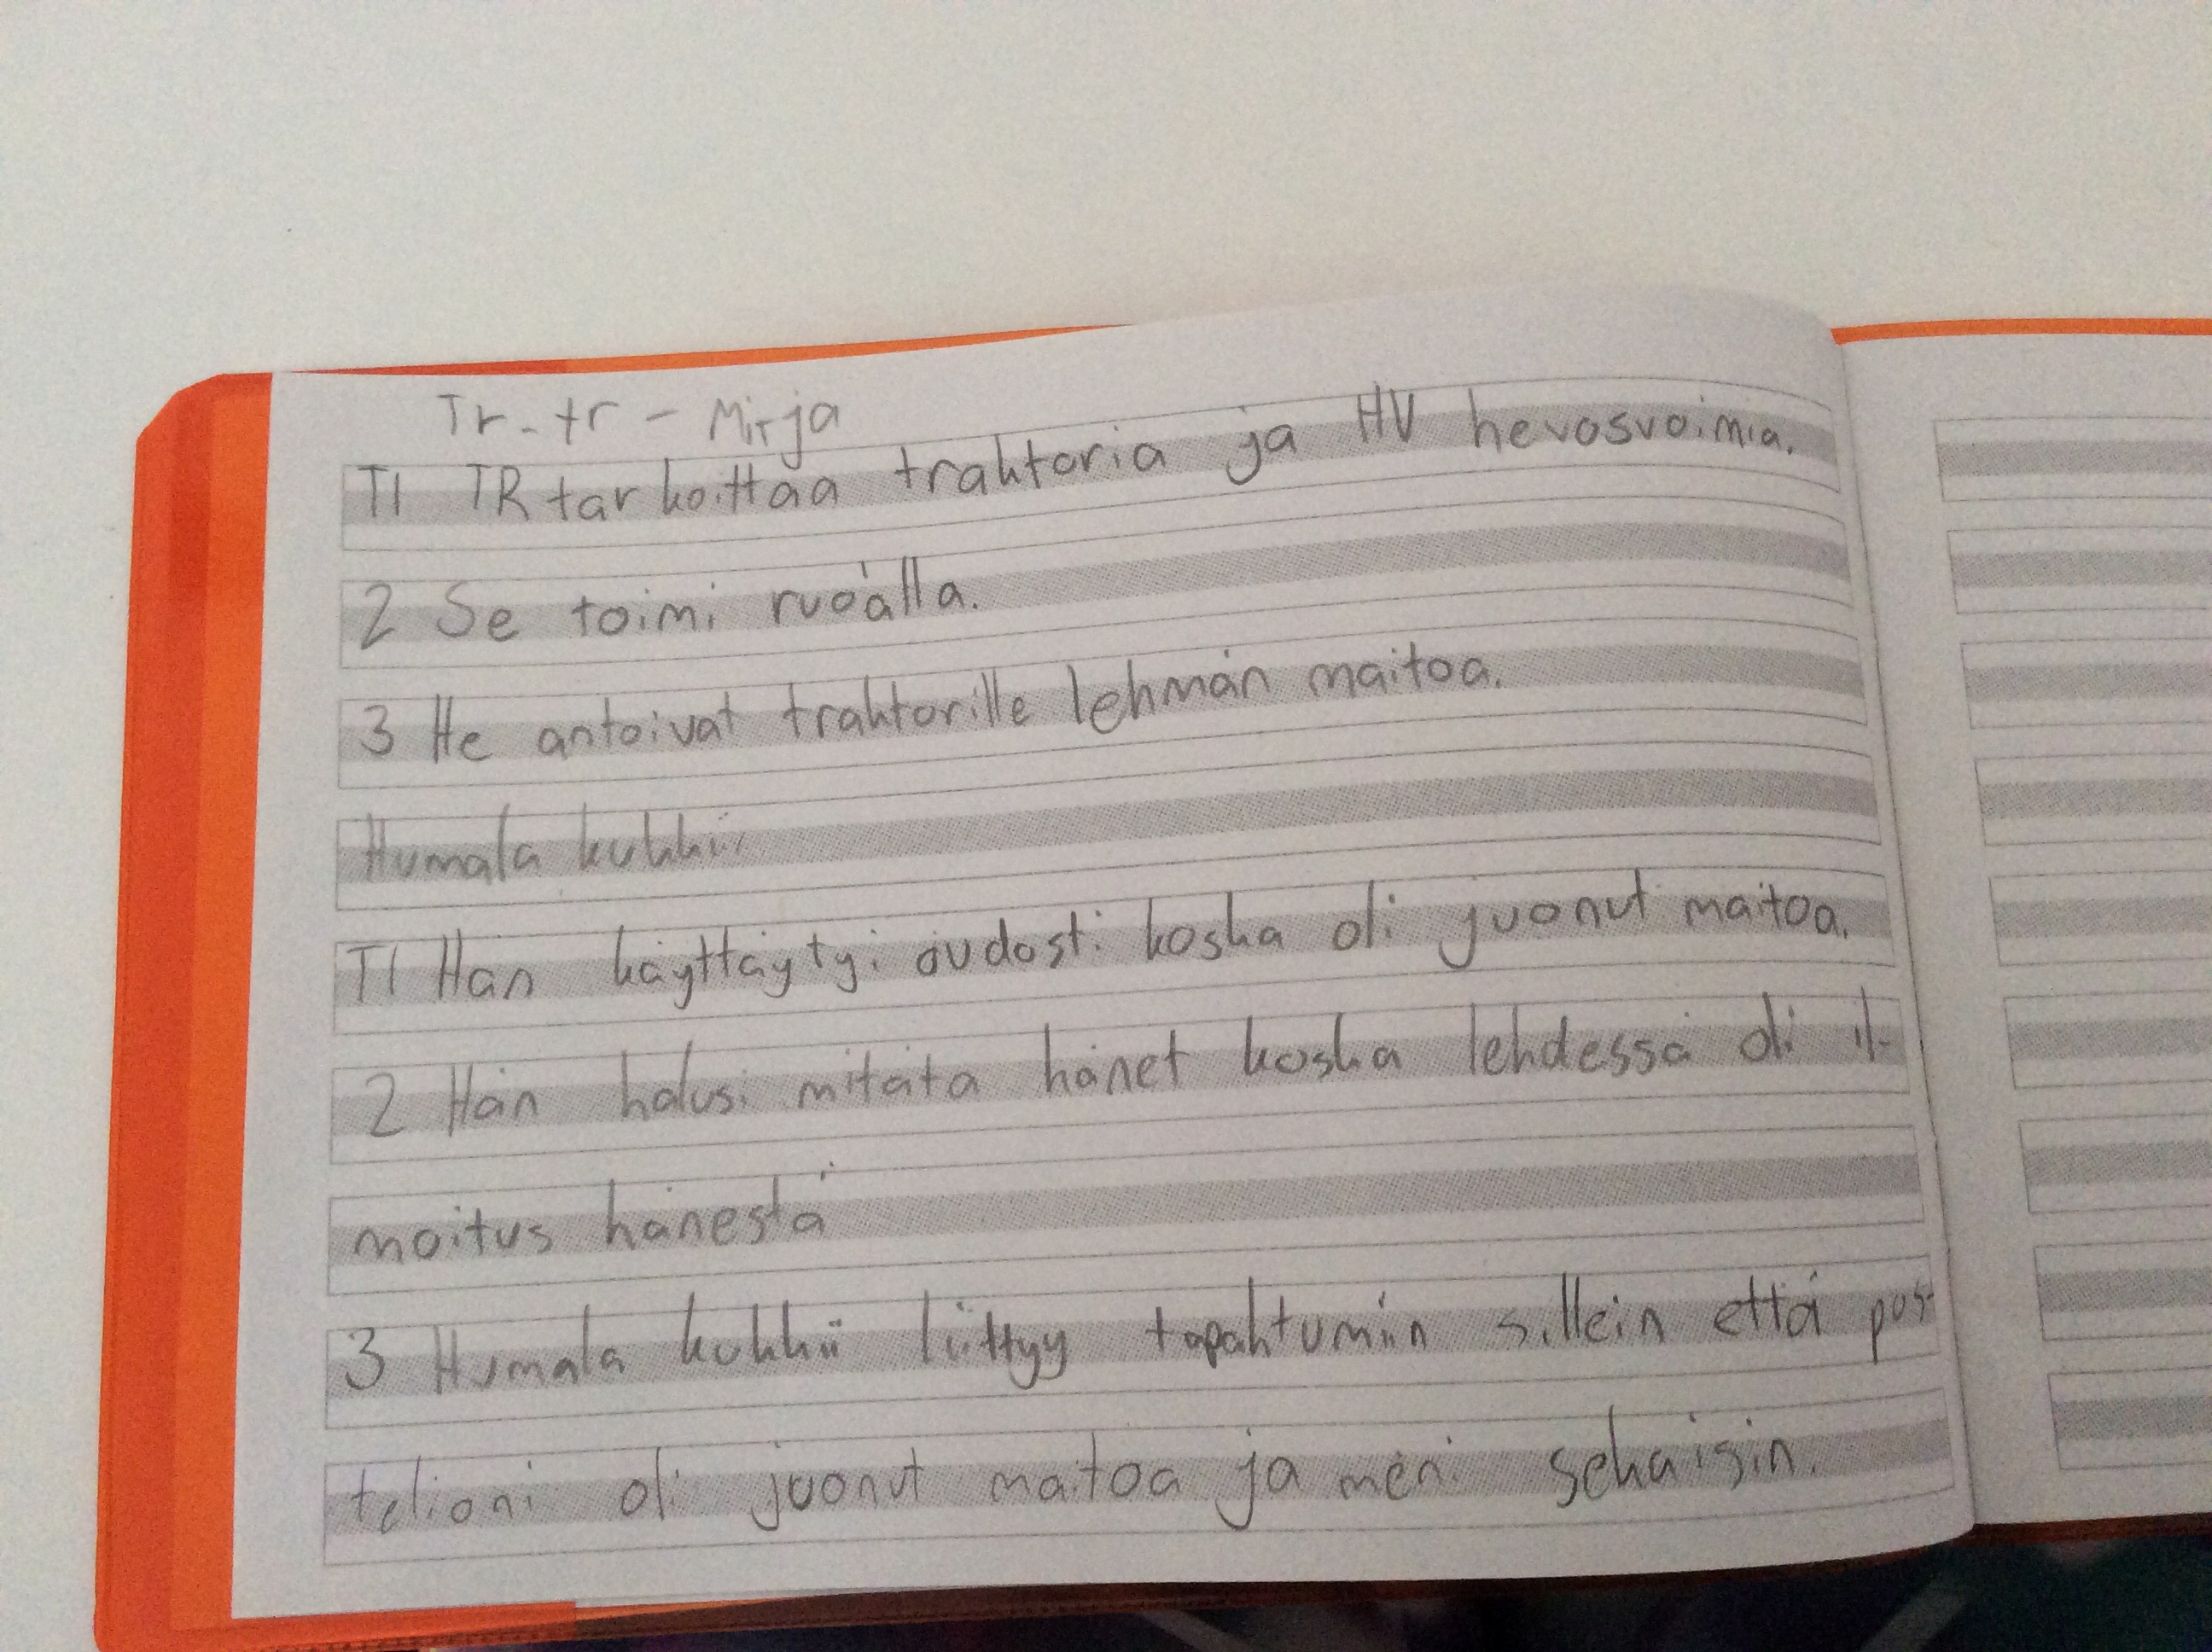 Tr-tr - Mirja
T1 TR tarkoittaa traktoria ja HV hevosvoimia.
2 Se toimi ruo'alla.
3 He antoivat traktorille lehmän maitoa.
Humala kukkii
T1 Hän käyttäytyi oudosti koska oli juonut maitoa.
2 Hän halusi mitätä hänet koska lehdessä oli il-
moitus hänestä
3 Humala kukkii liittyy tapahtumiin sillein että pos-
telioni oli juonut maitoa ja meni sekaisin.